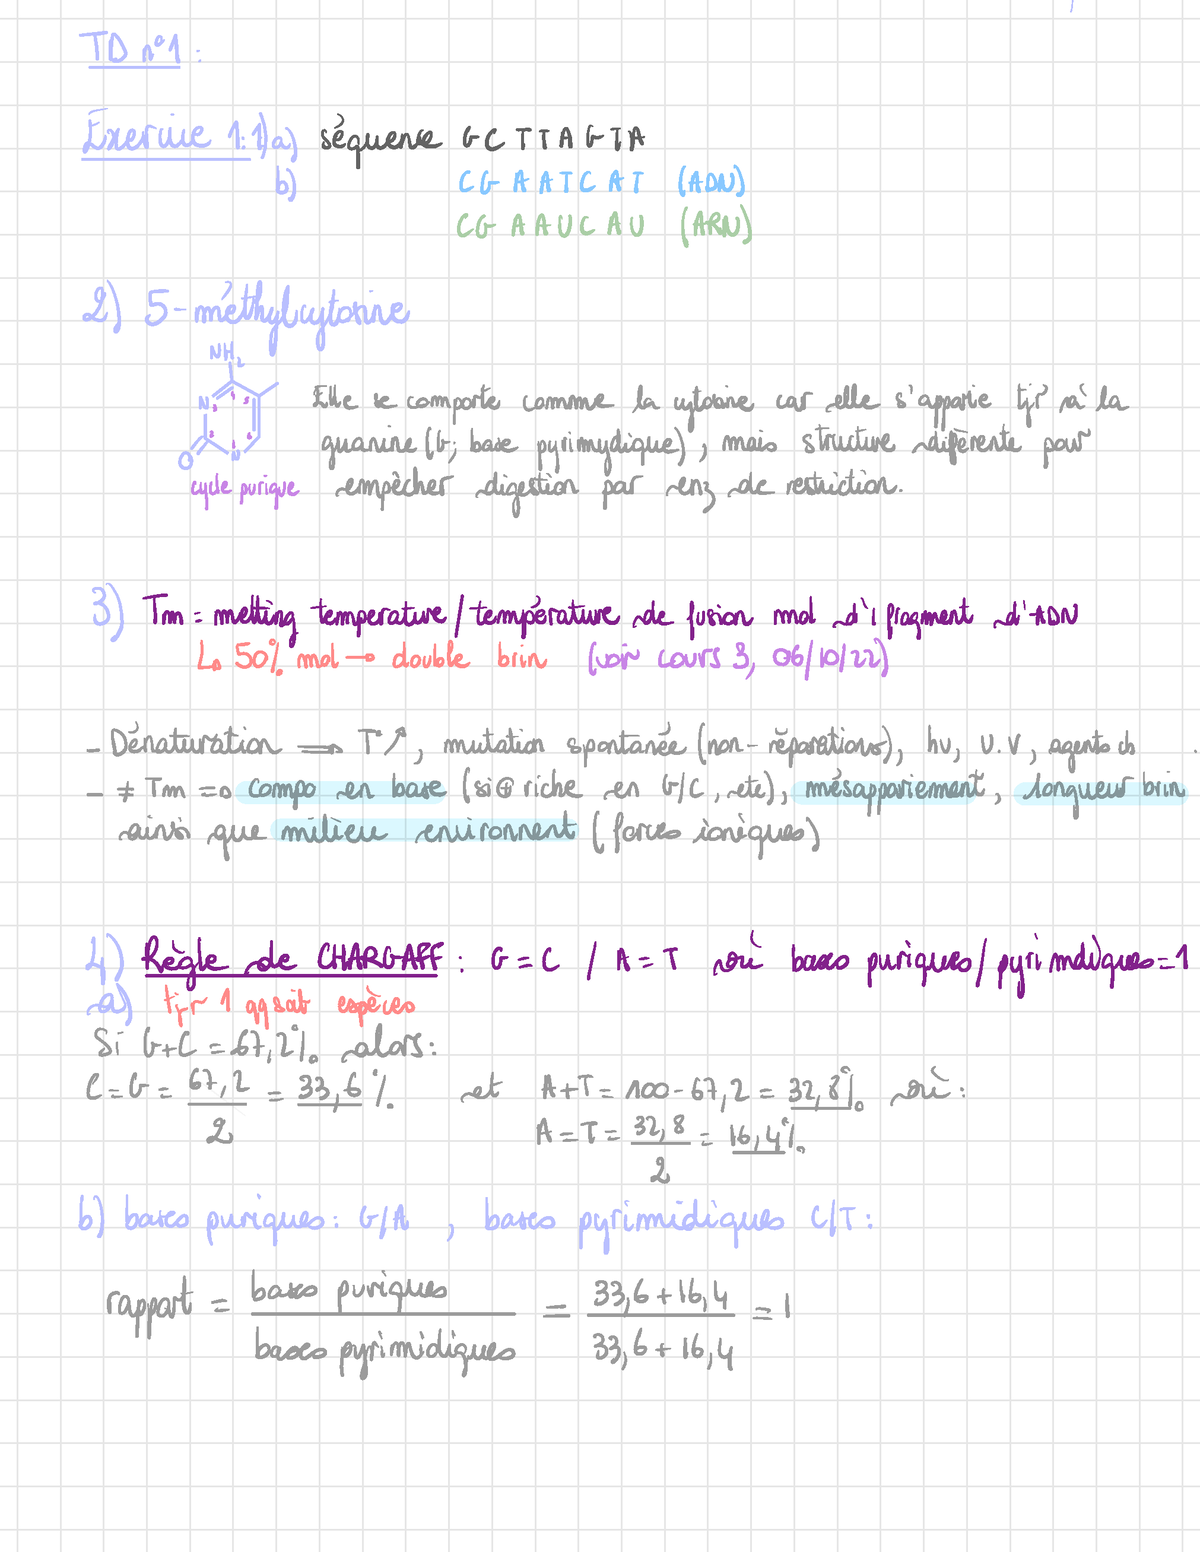 TD n°1 :
Exercice 1: 1) a) séquence G C T T A G T A
b) C G A A T C A T (ADN)
C G A A U C A U (ARN)
2) 5-méthylcytosine
NH2
N 3 4 5
2 1 6
O N
Elle se comporte comme la cytosine car elle s'apparie tjr à la
guanine (G; base pyrimydique), mais structure différente pour
cycle purique empêcher digestion par enz de restriction.
3) Tm = melting temperature / température de fusion mol d'1 fragment d'ADN
↳ 50% mol → double brin (voir cours 3, 06/10/22)
- Dénaturation ⟹ T°↗, mutation spontanée (non-réparations), hν, U.V, agents ch
- ≠ Tm ⟹ compo en base (si ⊕ riche en G/C, etc), mésappariement, longueur brin
ainsi que milieu environnent (forces ioniques)
4) Règle de CHARGAFF : G = C / A = T où bases puriques/pyrimdiques = 1
a) tjr 1 qq soit espèces
Si G+C = 67,2% alors:
C = G = 67,2 / 2 = 33,6 % et A+T = 100 - 67,2 = 32,8% où :
A = T = 32,8 / 2 = 16,4%
b) bases puriques : G/A , bases pyrimidiques C/T :
rapport = bases puriques / bases pyrimidiques = 33,6 + 16,4 / 33,6 + 16,4 = 1